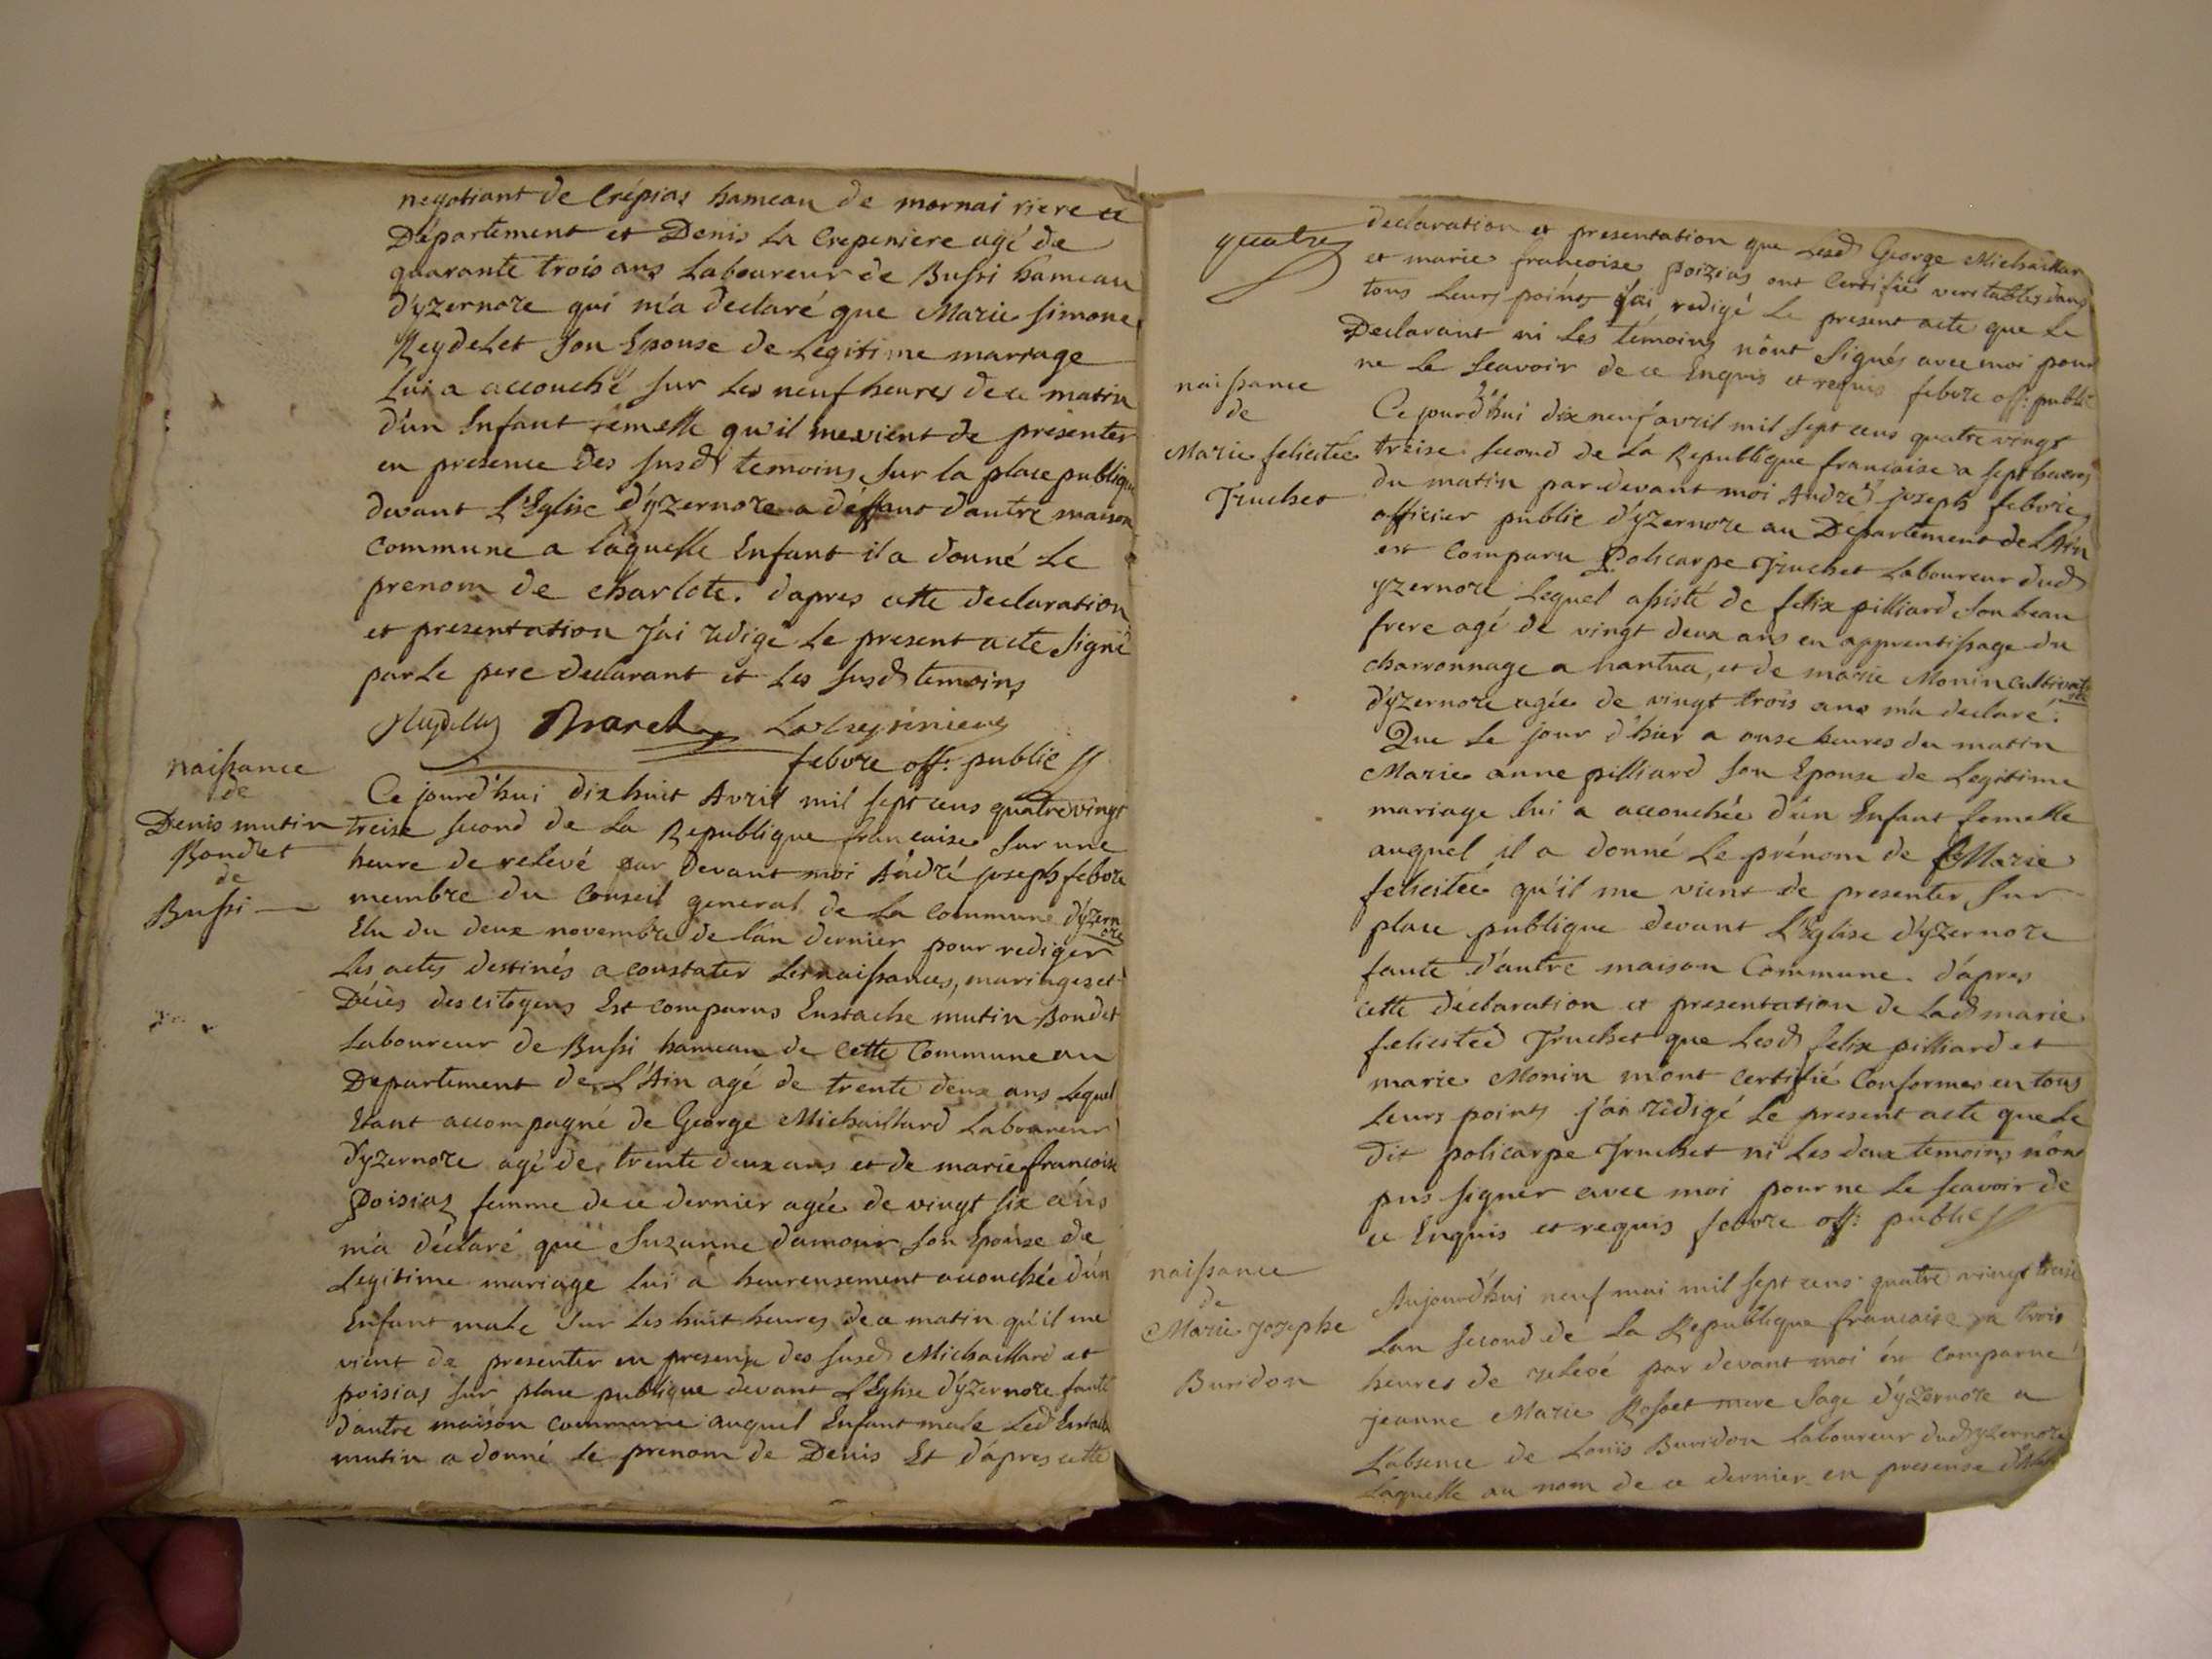 negotiant de Crépias hameau de mornai riere ce
Département et Denis La Crepeniere agé de
quarante trois ans Laboureur de Bussi hameau
d'yzernore qui m'a declaré que Marie simone
Reydelet Son Epouse de Legitime marrage
Lui a accouché sur Les neuf heures de ce matin
d'un Enfant femelle qu'il me vient de présenter
en presence des susd temoins sur la place publique
devant L'Eglise d'yzernore a déffaut dautre maison
Commune a laquelle Enfant il a donné Le
prenom de charlote. dapres cette declaration
et presentation j'ai redigé Le present acte signé
par Le pere declarant et Les susd temoins
febvre off: public
naissance
de
Denis mutin
Bondet
de
Bussi
Ce jourd'hui dix huit Avril mil sept cens quatre vingt
treise second de La Republique francaise sur une
heure de relevé par devant moi André joseph febvre
membre du Conseil general de La Commune d'yzernore
Elu du deux novembre de l'an dernier pour rediger
Les actes destinés a constater Les naissances, mariages et
Décès des citoyens Est comparus Eustache mutin Bondet
Laboureur de Bussi hameau de cette Commune au
Departement de L'Ain agé de trente deux ans Lequel
Etant accompagné de George Michaillard Laboureur
d'yzernore agé de trente deux ans et de marie francoise
poisias femme de ce dernier agée de vingt six ans
m'a déclaré que Suzanne damour son Epouse de
Legitime mariage lui a heureusement accouchée d'un
Enfant male sur les huit heures de ce matin qu'il me
vient de presenter en presence des susd Michaillard et
poisias sur place publique devant L'Eglise d'yzernore faute
d'autre maison commune auquel Enfant male Led Eustache
mutin a donné le prenom de Denis Et d'apres cette
quatre
declaration et presentation que Lesd George Michaillard
et marie francoise poizias ont Certifié veritables dans
tous Leurs points j'ai redigé Le present acte que Le
Declarant ni Les témoins n'ont signés avec moi pour
ne Le Scavoir de ce Enquis et requis febvre off: public
naissance
de
Marie felicitée
Truchet
Ce jourd'hui dix neuf avril mil sept cens quatre vingt
treise second de La Republique francaise a sept heures
du matin par devant moi André joseph febvre
officier public d'yzernore au Departement de L'Ain
est Comparu Policarpe Truchet Laboureur dud
yzernore Lequel assisté de felix pilliard son beau
frere agé de vingt deux ans en apprentissage du
charronnage a nantua, et de marie Monin Cultivatrice
d'yzernore agée de vingt trois ans m'a declaré.
Que le jour d'hier a onse heures du matin
Marie anne pilliard son Epouse de Legitime
mariage lui a accouchée d'un Enfant femelle
auquel il a donné Le prénom de Marie
felicitée qu'il me vient de presenter sur
place publique devant L'Eglise d'yzernore
faute d'autre maison Commune. d'apres
cette déclaration et presentation de Lad marie
felicitée Truchet que Lesd felix pilliard et
marie Monin m'ont certifié Conformes en tous
Leurs points j'ai redigé Le present acte que Le
dit policarpe Truchet ni Les deux temoins n'ont
pus signer avec moi pour ne Le scavoir de
ce Enquis et requis febvre off: public
naissance
de
Marie Josephe
Buridon
Aujourd'hui neuf mai mil sept cens quatre vingt treise
Lan second de La Republique francaise a trois
heures de relevé par devant moi est comparue
jeanne Marie Rosset mere sage d'yzernore a
L'absence de Louis Buridon laboureur dud yzernore
Laquelle au nom de ce dernier en presense